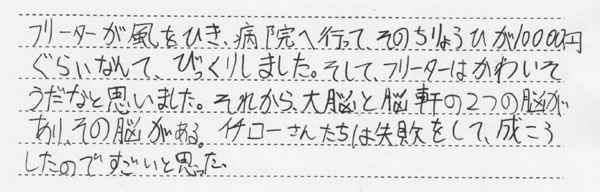 フリーターが風をひき、病院へ行って、そのちりょうひが10000円
ぐらいなんて、びっくりしました。そして、フリーターはかわいそ
うだなと思いました。それから、大脳と脳軒の2つの脳が
あり、その脳がある。イチローさんたちは失敗をして、成こう
したのですごいと思った。